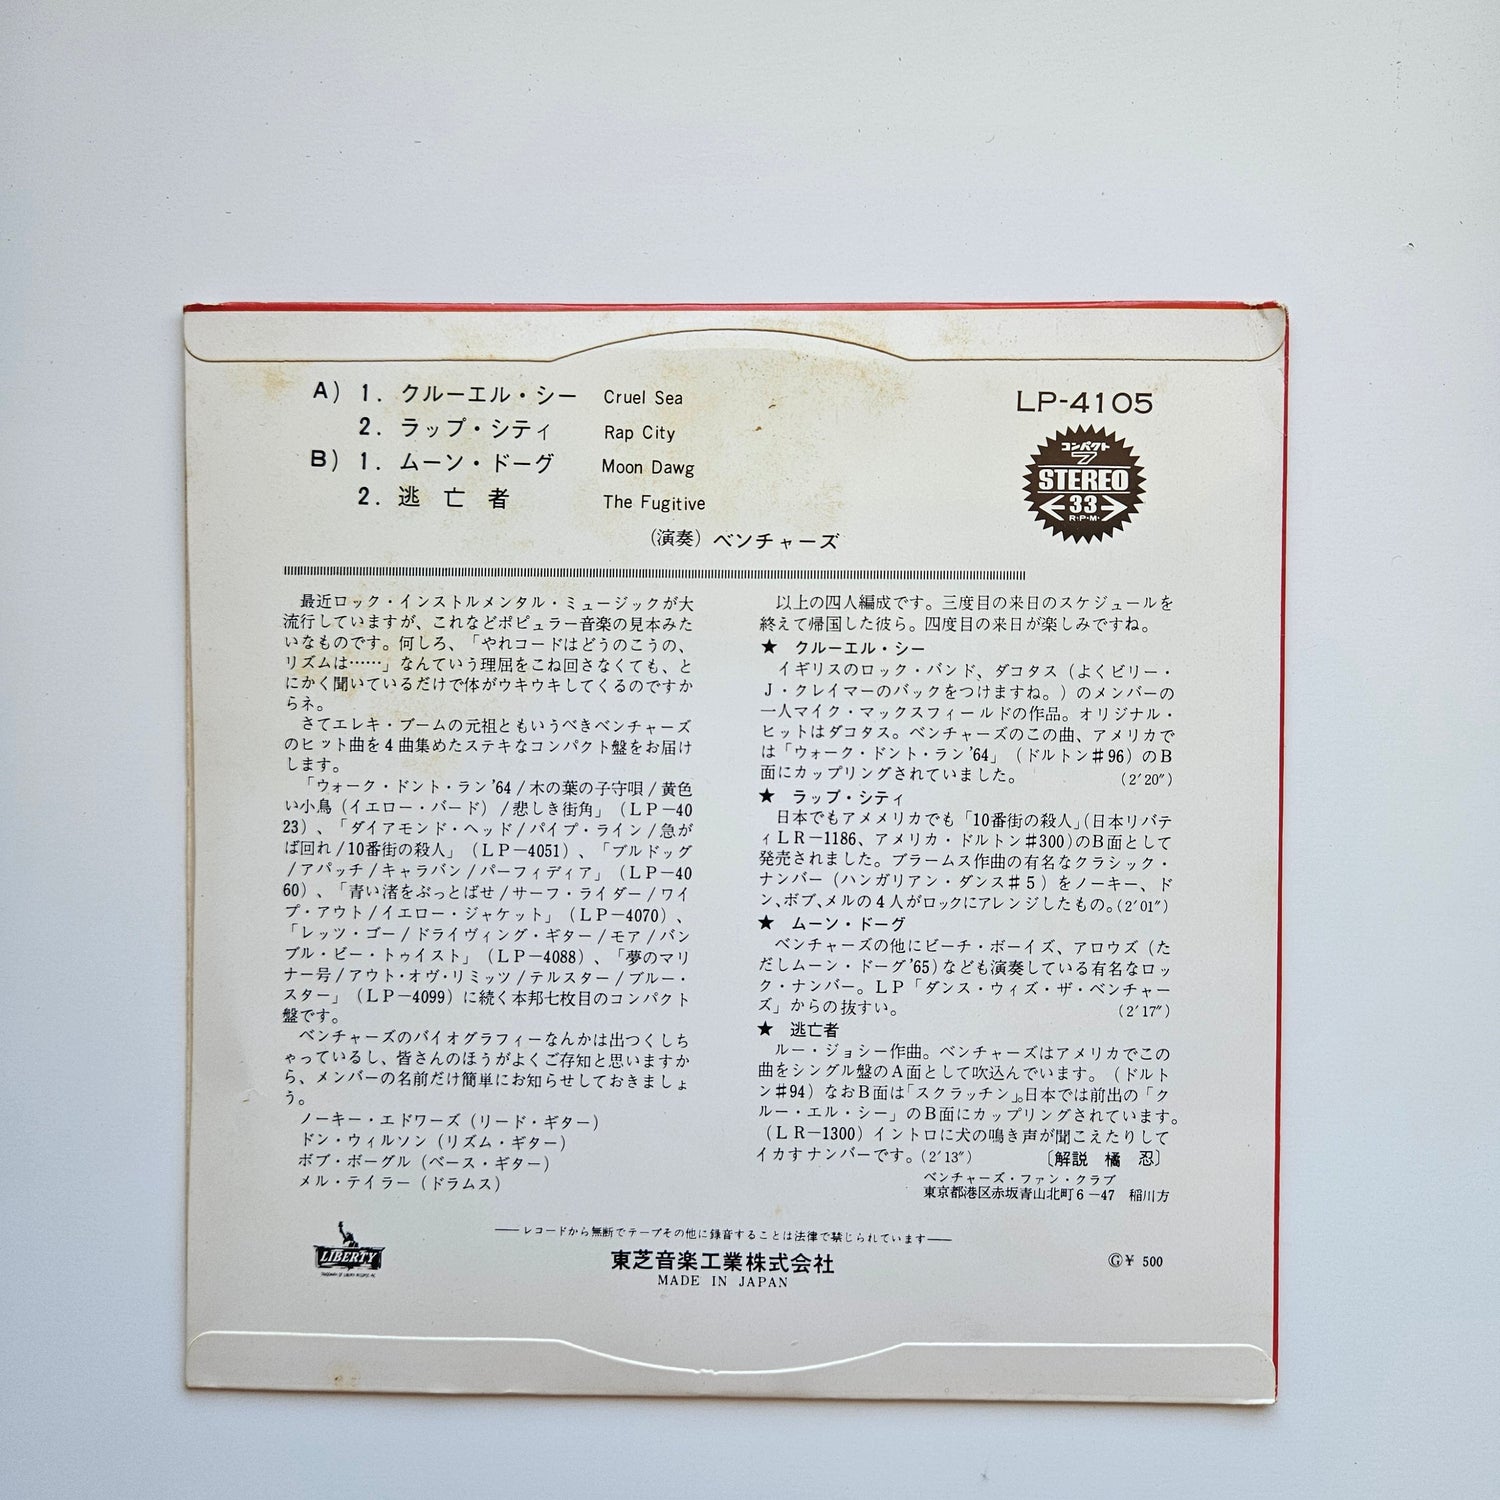 A) 1. クルーエル・シー Cruel Sea
2. ラップ・シティ Rap City
B) 1. ムーン・ドーグ Moon Dawg
2. 逃亡者 The Fugitive
(演奏) ベンチャーズ
LP-4105
コンパクト
7
STEREO
33
R・P・M・
最近ロック・インストルメンタル・ミュージックが大
流行していますが、これなどポピュラー音楽の見本みた
いなものです。何しろ、「やれコードはどうのこうの、
リズムは……」なんていう理屈をこね回さなくても、と
にかく聞いているだけで体がウキウキしてくるのですか
らネ。
さてエレキ・ブームの元祖ともいうべきベンチャーズ
のヒット曲を4曲集めたステキなコンパクト盤をお届け
します。
「ウォーク・ドント・ラン'64/木の葉の子守唄/黄色
い小鳥(イエロー・バード)/悲しき街角」(LP-40
23)、「ダイアモンド・ヘッド/パイプ・ライン/急が
ば回れ/10番街の殺人」(LP-4051)、「ブルドッグ
/アパッチ/キャラバン/パーフィディア」(LP-40
60)、「青い渚をぶっとばせ/サーフ・ライダー/ワイ
プ・アウト/イエロー・ジャケット」(LP-4070)、
「レッツ・ゴー/ドライヴィング・ギター/モア/バン
ブル・ビー・トゥイスト」(LP-4088)、「夢のマリ
ナー号/アウト・オヴ・リミッツ/テルスター/ブルー・
スター」(LP-4099)に続く本邦七枚目のコンパクト
盤です。
ベンチャーズのバイオグラフィーなんかは出つくしち
ゃっているし、皆さんのほうがよくご存知と思いますか
ら、メンバーの名前だけ簡単にお知らせしておきましょ
う。
ノーキー・エドワーズ(リード・ギター)
ドン・ウィルソン(リズム・ギター)
ボブ・ボーグル(ベース・ギター)
メル・テイラー(ドラムス)
以上の四人編成です。三度目の来日のスケジュールを
終えて帰国した彼ら。四度目の来日が楽しみですね。
★ クルーエル・シー
イギリスのロック・バンド、ダコタス(よくビリー・
J・クレイマーのバックをつけますね。)のメンバーの
一人マイク・マックスフィールドの作品。オリジナル・
ヒットはダコタス。ベンチャーズのこの曲、アメリカで
は「ウォーク・ドント・ラン'64」(ドルトン#96)のB
面にカップリングされていました。 (2'20")
★ ラップ・シティ
日本でもアメメリカでも「10番街の殺人」(日本リバテ
ィLR-1186、アメリカ・ドルトン#300)のB面として
発売されました。ブラームス作曲の有名なクラシック・
ナンバー(ハンガリアン・ダンス#5)をノーキー、ド
ン、ボブ、メルの4人がロックにアレンジしたもの。(2'01")
★ ムーン・ドーグ
ベンチャーズの他にビーチ・ボーイズ、アロウズ(た
だしムーン・ドーグ'65)なども演奏している有名なロッ
ク・ナンバー。LP「ダンス・ウィズ・ザ・ベンチャー
ズ」からの抜すい。 (2'17")
★ 逃亡者
ルー・ジョシー作曲。ベンチャーズはアメリカでこの
曲をシングル盤のA面として吹込んでいます。(ドルト
ン#94)なおB面は「スクラッチン」。日本では前出の「ク
ルー・エル・シー」のB面にカップリングされています。
(LR-1300)イントロに犬の鳴き声が聞こえたりして
イカすナンバーです。(2'13") 〔解説 橘 忍〕
ベンチャーズ・ファン・クラブ
東京都港区赤坂青山北町6-47 稲川方
──レコードから無断でテープその他に録音することは法律で禁じられています──
LIBERTY
東芝音楽工業株式会社
MADE IN JAPAN
Ⓖ¥ 500